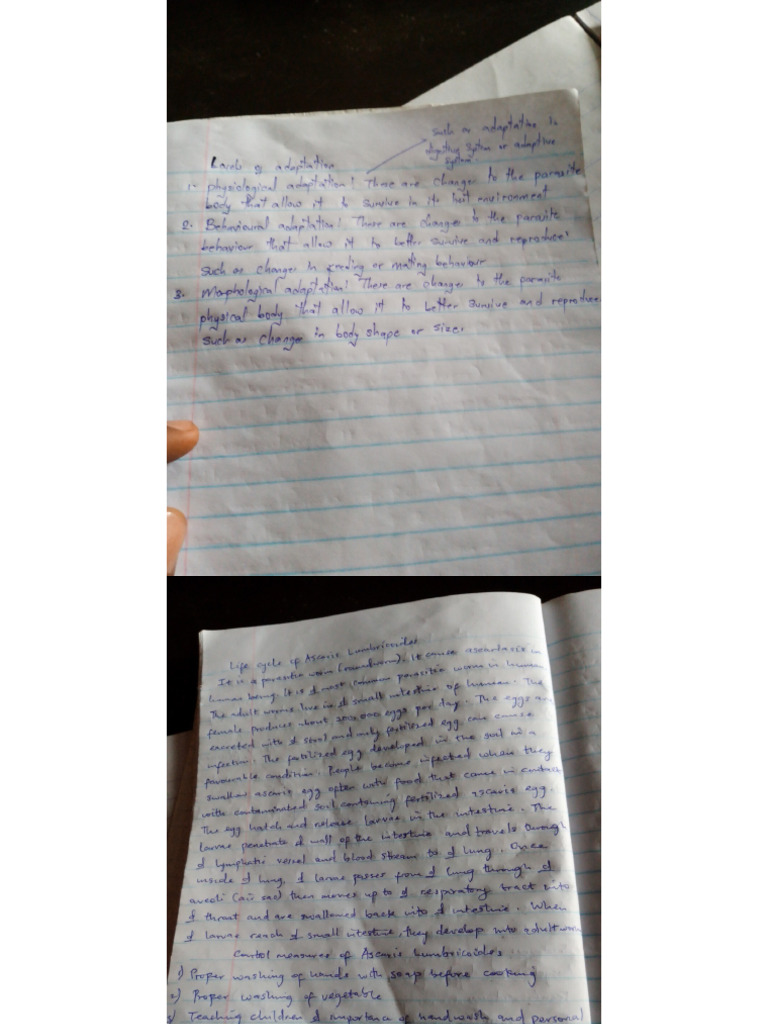 such as adaptation in
digestive system or adaptive
system
Levels of adaptation
1- physiological adaptation! These are changes to the parasite
body that allow it to survive in its host environment
2. Behavioural adaptation! These are changes to the parasite
behaviour that allow it to better survive and reproduce'
such as changes in feeding or mating behaviour
3. Morphological adaptation! These are changes to the parasite
physical body that allow it to better survive and reproduce
such as changes in body shape or size.
Life cycle of Ascaris Lumbricoides
It is a parasitic worm (roundworm). It cause ascariasis in
human being. It is d most common parasitic worm in human
The adult worms live in d small intestine of human. The
female produces about eggs per day. The eggs are
excreted with d stool and only fertilized egg can cause
infection. The fertilized egg developed in the soil in a
favourable condition. People become infected when they
swallow ascaris egg often with food that came in contact
with contaminated soil containing fertilized ascaris egg.
The egg hatch and release larvae in the intestine. The
larvae penetrate d wall of the intestine and travels through
d lymphatic vessel and blood stream to d lung. Once
inside d lung, d larvae passes from d lung through d
aveoli (air sac) then moves up to d respiratory tract into
d throat and are swallowed back into d intestine. When
d larvae reach d small intestine, they develop into adult worm
Control measures of Ascaris Lumbricoides
1) Proper washing of hands with soap before cooking
2) Proper washing of vegetable
3) Teaching children d importance of handwash and personal